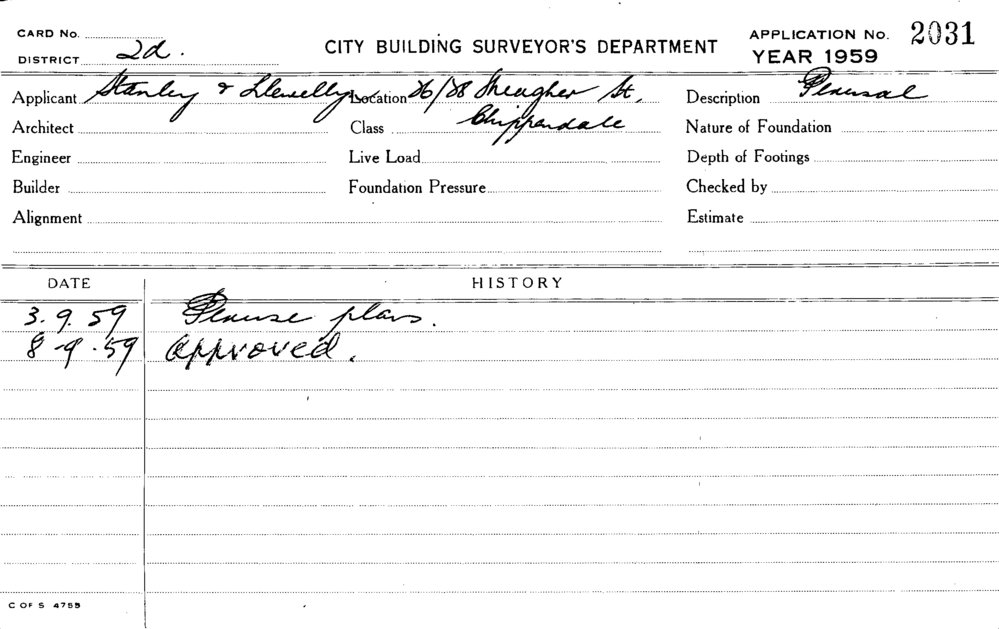 CARD No.
DISTRICT 2d.
CITY BUILDING SURVEYOR'S DEPARTMENT
APPLICATION No. 2031
YEAR 1959
Applicant Stanley & Llewellyn
Location 26/28 Meagher St,
Description Perusal
Architect
Class Chippendale
Nature of Foundation
Engineer
Live Load
Depth of Footings
Builder
Foundation Pressure
Checked by
Alignment
Estimate
DATE
HISTORY
3.9.59 Peruse plans.
8-9.59 Approved.
C OF S 4759